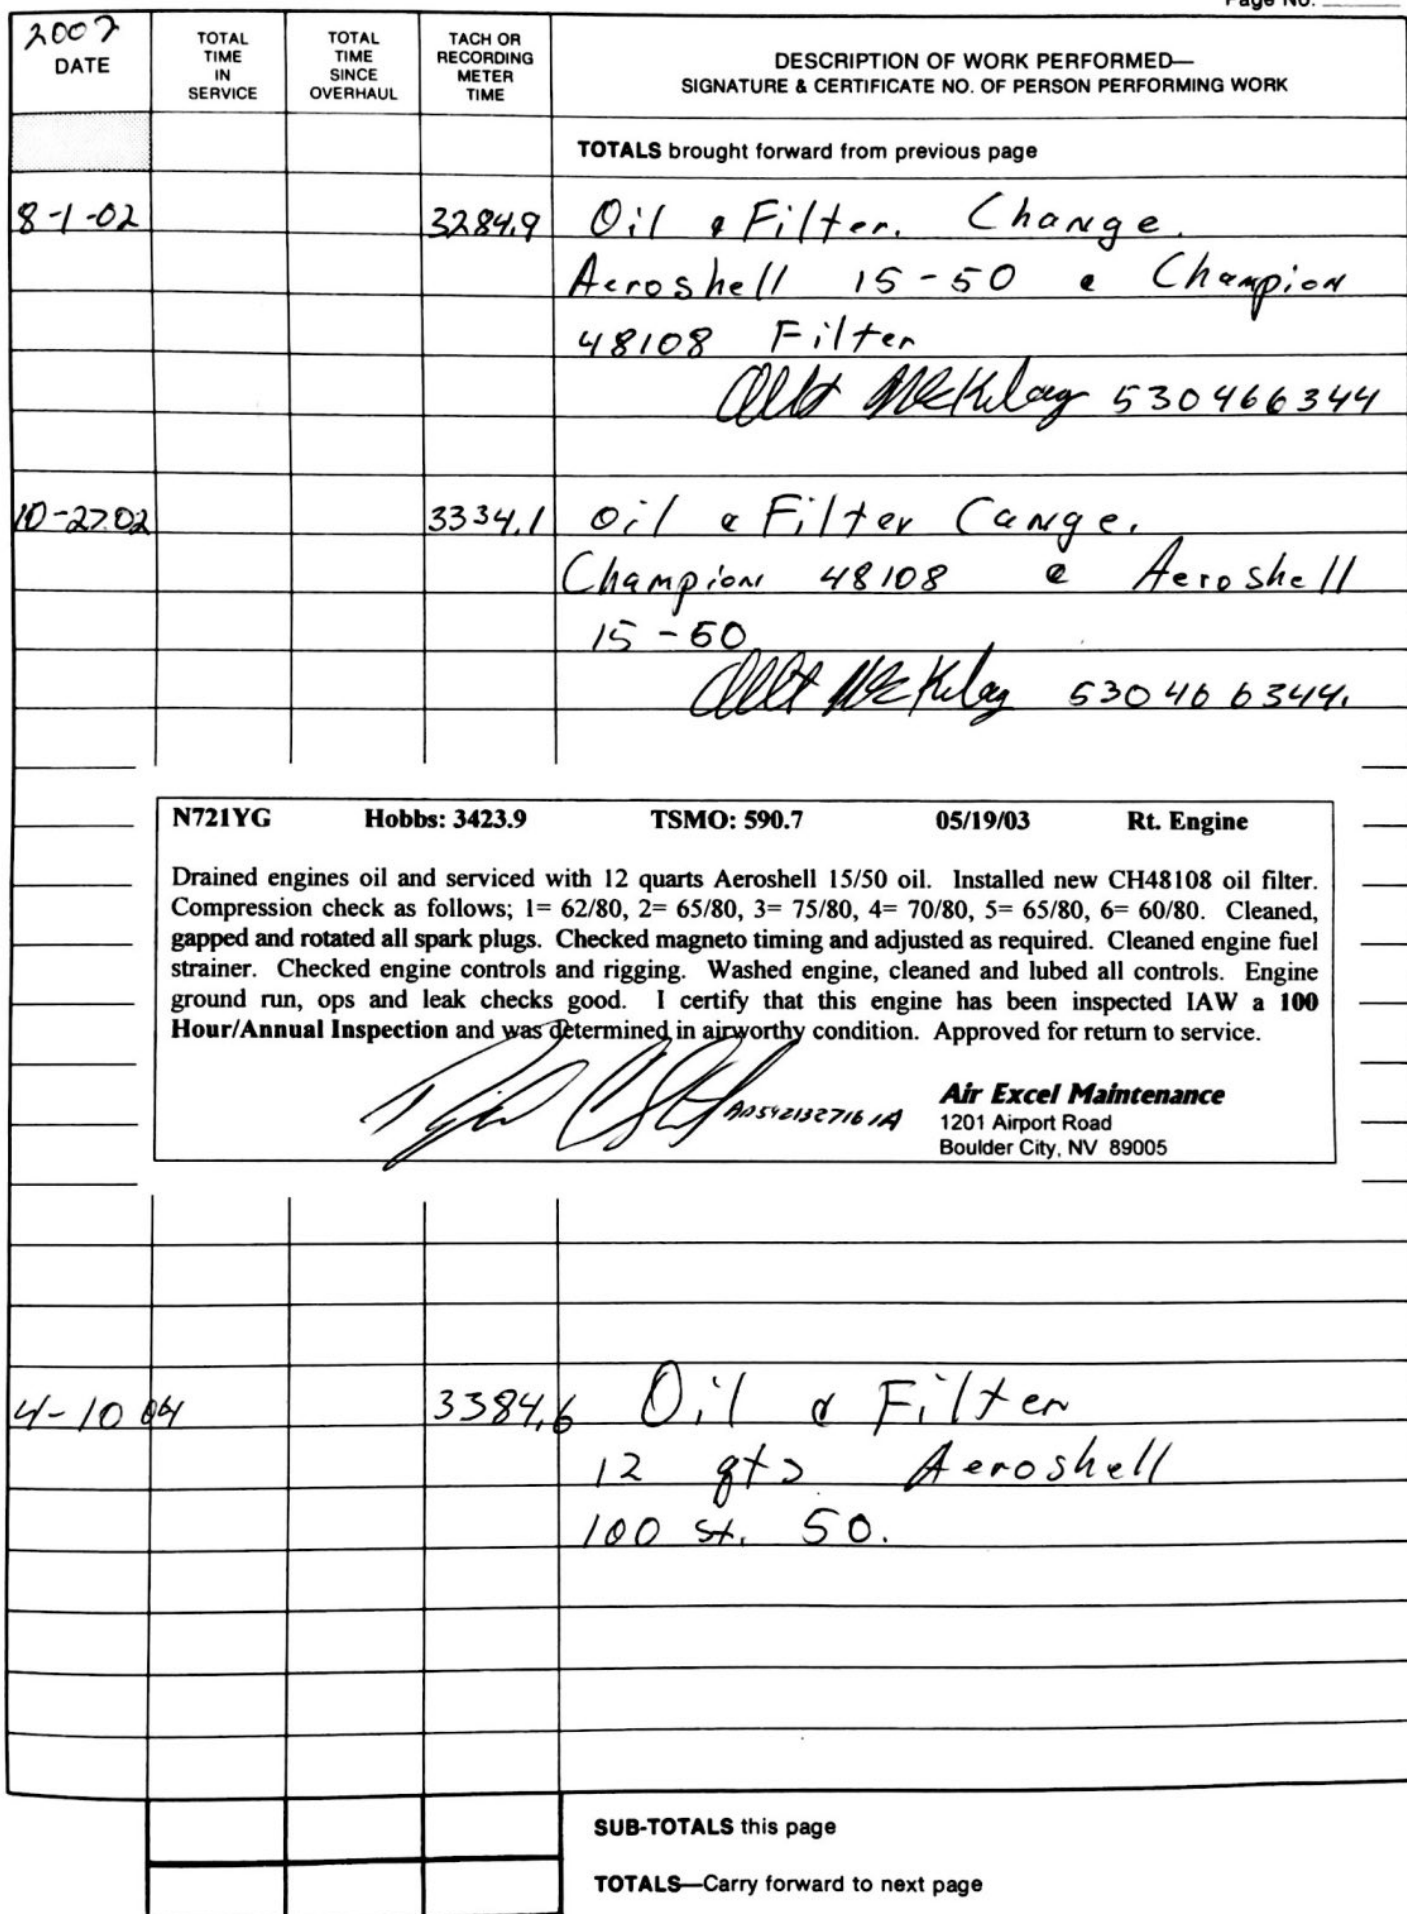 Page No.
2002
DATE
TOTAL
TIME
IN
SERVICE
TOTAL
TIME
SINCE
OVERHAUL
TACH OR
RECORDING
METER
TIME
DESCRIPTION OF WORK PERFORMED—
SIGNATURE & CERTIFICATE NO. OF PERSON PERFORMING WORK
TOTALS brought forward from previous page
8-1-02 3284.9 Oil & Filter. Change.
Aeroshell 15-50 & Champion
48108 Filter
530466344
10-27.02 3334.1 Oil & Filter Cange.
Champion 48108 & Aeroshell
15-50
530466344.
N721YG Hobbs: 3423.9 TSMO: 590.7 05/19/03 Rt. Engine
Drained engines oil and serviced with 12 quarts Aeroshell 15/50 oil. Installed new CH48108 oil filter.
Compression check as follows; 1= 62/80, 2= 65/80, 3= 75/80, 4= 70/80, 5= 65/80, 6= 60/80. Cleaned,
gapped and rotated all spark plugs. Checked magneto timing and adjusted as required. Cleaned engine fuel
strainer. Checked engine controls and rigging. Washed engine, cleaned and lubed all controls. Engine
ground run, ops and leak checks good. I certify that this engine has been inspected IAW a 100
Hour/Annual Inspection and was determined in airworthy condition. Approved for return to service.
Air Excel Maintenance
1201 Airport Road
Boulder City, NV 89005
4-10 04 3384.6 Oil & Filter
12 qts Aeroshell
100 St. 50.
SUB-TOTALS this page
TOTALS—Carry forward to next page